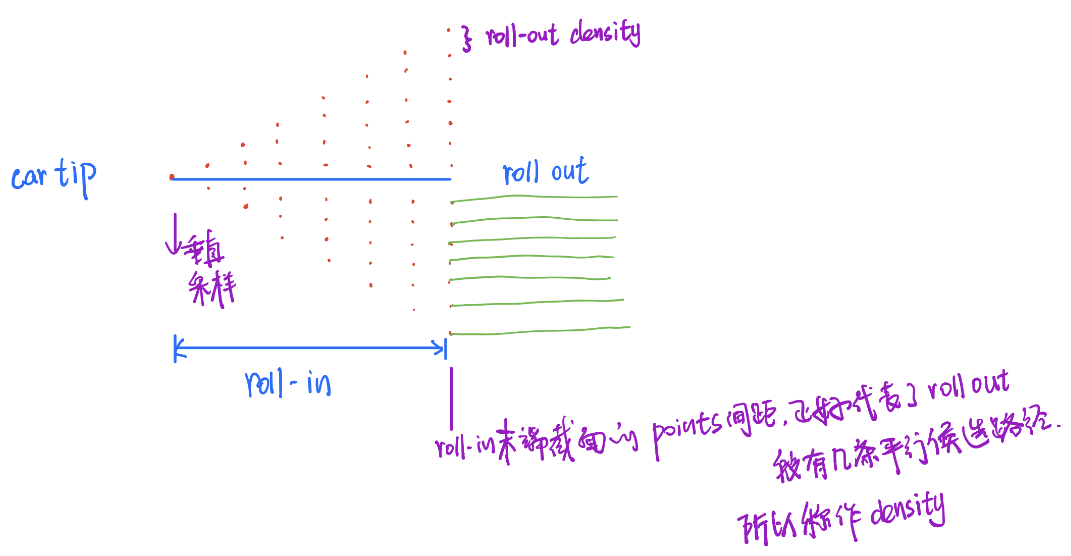 } roll-out density
car tip
roll out
垂直
采样
roll-in
roll-in末端截面的 points间距,正好代表了 roll out
能有几条平行候选路径.
所以称作 density